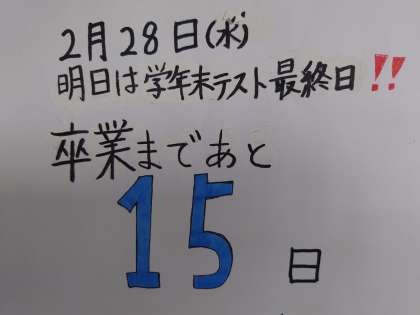 2月28日(水)
明日は学年末テスト最終日!!
卒業まであと
15日